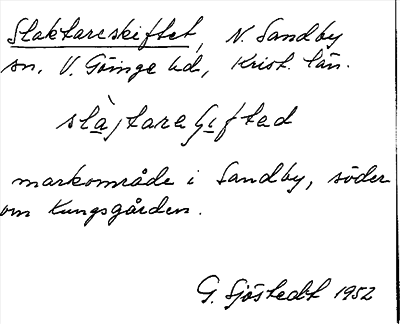 Slaktareskiftet, N. Sandby
sn, V. Göinge hd, Krist. län.
markområde i Sandby, söder
om Kungsgården.
G. Sjöstedt 1952